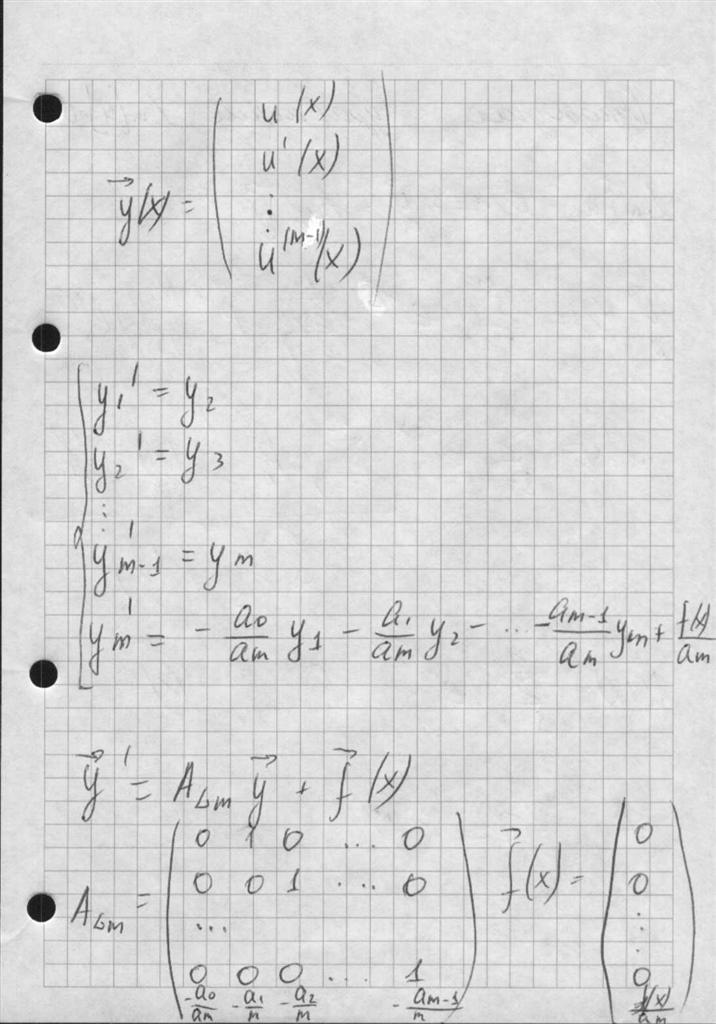 y⃗(x) = ( u(x)
u'(x)
⋮
u^(m-1)(x) )
{ y₁' = y₂
y₂' = y₃
⋮
y'ₘ₋₁ = yₘ
yₘ' = - a₀/aₘ y₁ - a₁/aₘ y₂ - ... - aₘ₋₁/aₘ yₘ + f(x)/aₘ
y⃗' = A_Lm y⃗ + f⃗(x)
A_Lm = ( 0 1 0 ... 0
0 0 1 ... 0
...
0 0 0 ... 1
-a₀/aₘ -a₁/m -a₂/m -aₘ₋₁/m )
f⃗(x) = ( 0
0
⋮
0
f(x)/aₘ )